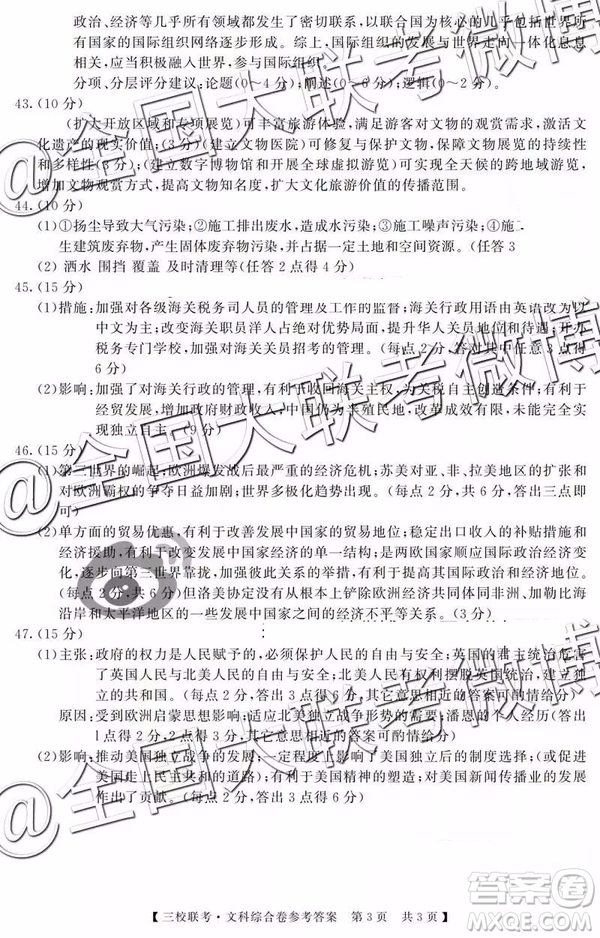 政治、经济等几乎所有领域都发生了密切联系,以联合国为核心的几乎包括世界所
有国家的国际组织网络逐步形成。综上,国际组织的发展与世界走向一体化息息
相关,应当积极融入世界,参与国际组织
分项、分层评分建议:论题(0～4 分);阐述(0～6 分);逻辑(0～2 分)。
43.(10 分)
(扩大开放区域和专项展览)可丰富旅游体验,满足游客对文物的观赏需求,激活文
化遗产的现实价值;(建立文物医院)可修复与保护文物,保障文物展览的持续性
和多样性;(建立数字博物馆和开展全球虚拟游览)可实现足不出户的跨地域游览,
增加文物观赏方式,提高文物知名度,扩大文化旅游价值的传播范围。
44.(10 分)
(1)①扬尘导致大气污染;②施工排出废水,造成水污染;③施工噪声污染;④施工
生建筑废弃物,产生固体废弃物污染,并占据一定土地和空间。(任答 3
(2) 洒水 围挡 覆盖 及时清理等(任答 2 点得 4 分)
45.(15 分)
(1)措施:加强对各级海关税务司人员的管理及工作的监督;海关行政用语由英语改为以
中文为主;改变海关职员洋人占绝对优势局面,提升华人关员地位和待遇;开办
税务专门学校,加强对海关关员招考的管理。(每点 2 分,其中任意答出 3 点得
6 分)
(2)影响:加强了对海关行政的管理,有利于收回海关主权,为关税自主创造条件;有利于
经贸发展,增加政府财政收入;中国仍为半殖民地,改革的成效有限,未能完全
实现独立自主。(9 分)
46.(15 分)
(1)第三世界的崛起;欧洲爆发战后最严重的经济危机;苏美对亚、非、拉美地区的扩张和
对欧洲霸权的争夺日益加剧;世界多极化趋势出现。(每点 2 分,共 6 分,答出三点即
可)
(2)单方面的贸易优惠,有利于改善发展中国家的贸易地位;稳定出口收入的补贴措施和
经济援助,有利于改变发展中国家经济的单一结构;是西欧国家顺应国际政治经济变
化,逐步向第三世界靠拢,加强彼此联系的举措,有利于其国际政治和经济地位。
(每点 2 分,共 6 分)洛美协定没有也不可能从根本上铲除欧洲经济共同体同非洲、加勒比海
沿岸和太平洋地区的一些发展中国家之间的经济不平等关系。(3 分)
47.(15 分)
(1)主张:政府的权力是人民赋予的,必须保护人民的自由与安全;英国的君主统治危害
了英国人民与北美人民的自由与安全;北美人民有权利摆脱英国统治,建立
民主共和政府。(每点 2 分,共 6 分,其它意思相近的答案可酌情给分)
原因:受到欧洲启蒙思想影响;适应北美独立战争形势的需要;潘恩的个人经历(答出
1 点得 2 分,共 4 分,其它意思相近的答案可酌情给分)
(2)影响:推动美国独立战争的发展;一定程度上影响了美国独立后的制度选择;(或促进
美国走上民主共和的道路);有利于美国精神的塑造;对美国新闻传播业的发展
作出了贡献。(每点 2 分,答出 3 点得 6 分)
【三校联考·文科综合卷参考答案 第 3 页 共 3 页】
@全国大联考微博
@全国大联考微博
@全国大联考微博
答案圈